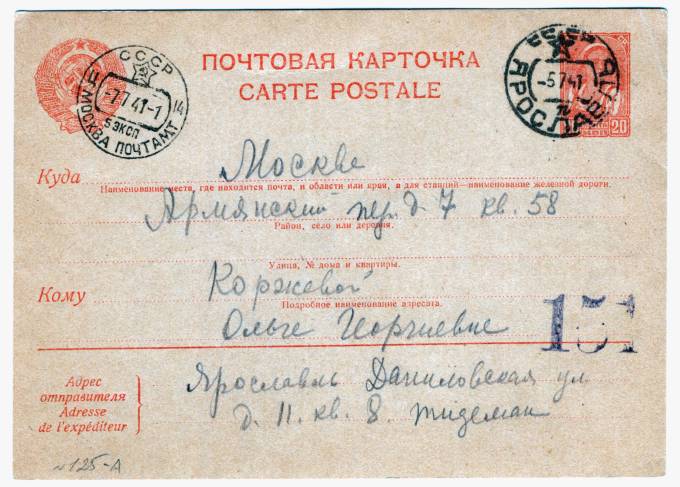 ПОЧТОВАЯ КАРТОЧКА
CARTE POSTALE
СССР
-7.7.41-1
14
5 ЭКСП
МОСКВА ПОЧТАМТ
-5.7.41
ЯРОСЛАВЛЬ
20
Куда
Москве
Наименование места, где находится почта, и области или края, а для станций—наименование железной дороги.
Армянский пер. д. 7 кв. 58
Район, село или деревня.
Улица, № дома и квартиры.
Кому
Коржевой
Подробное наименование адресата.
Ольге Георгиевне
151
Адрес
отправителя
Adresse
de l'expéditeur
Ярославль Даниловская ул.
д. 11. кв. 8. Тидеман
№125-А